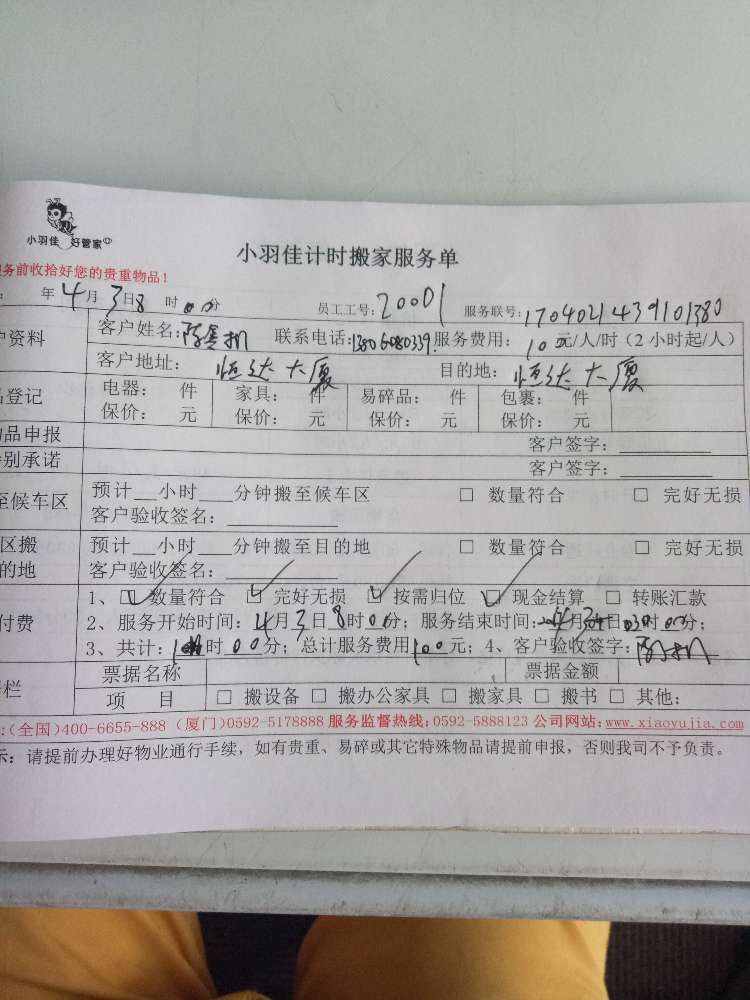 小羽佳 好管家
小羽佳计时搬家服务单
务前收拾好您的贵重物品！
年4月3日8时00分 员工工号：20001 服务联号：1704021439101380
户资料 客户姓名： 联系电话：13806080339 服务费用：10元/人/时（2小时起/人）
客户地址：恒达大厦 目的地：恒达大厦
登记 电器： 件 家具： 件 易碎品： 件 包裹： 件
保价： 元 保价： 元 保价： 元 保价： 元
品申报 客户签字：
别承诺 客户签字：
至候车区 预计__小时___分钟搬至候车区 □ 数量符合 □ 完好无损
客户验收签名：
区搬 预计__小时___分钟搬至目的地 □ 数量符合 □ 完好无损
的地 客户验收签名：
1、☑ 数量符合 ☑ 完好无损 ☑ 按需归位 ☑ 现金结算 □ 转账汇款
付费 2、服务开始时间：4月3日8时00分；服务结束时间： 月 日 时00分；
3、共计： 时00分；总计服务费用100元；4、客户验收签字：
栏 票据名称 票据金额
项 目 □ 搬设备 □ 搬办公家具 □ 搬家具 □ 搬书 □ 其他：
：(全国)400-6655-888（厦门)0592-5178888 服务监督热线：0592-5888123 公司网站：www.xiaoyujia.com
示：请提前办理好物业通行手续，如有贵重、易碎或其它特殊物品请提前申报，否则我司不予负责。